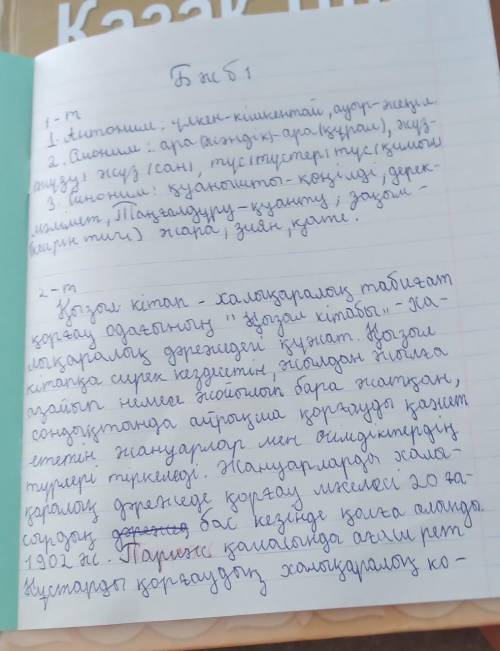 Қазақ
БЖБ1
1-т
1. Антоним: үлкен-кішкентай, ауыр-жеңіл
2. Омоним: ара (жәндік)-ара (құрал), жүз-
жүзу) жүз (сан), түс (түстер) түс (қимыл
3. Синоним: қуанышты-көңілді, дерек-
мәлімет, Таңғалдұру-қуанту, зақым-
тиу) жара, зиян, қате.
2-т
Қызыл кітап - халықаралық табиғат
қорғау одағының "Қызыл кітабы" - ха-
лықаралық дәрежедегі құжат. Қызыл
кітапқа сирек кездесетін, жылдан жылға
азайып немесе жойылып бара жатқан,
сондықтанда айрықша қорғауды қажет
ететін жануарлар мен өсімдіктердің
түрлері тіркеледі. Жануарларды халы-
қаралық дәрежеде қорғау мәселесі 20 ға-
сырдың бас кезінде қолға алынды.
1902 ж. Париж қаласында алғаш рет
Құстарды қорғаудың халықаралық ко-